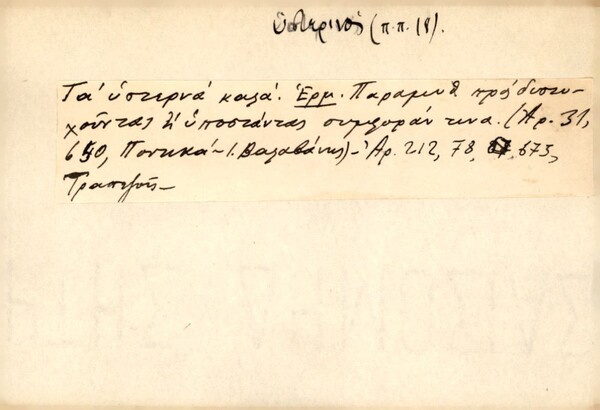 ὑστερινός (π.π. 18).
Τα ὑστερνά καλά. Ἑρμ. Παραμυθ. πρός δυστυ-
χοῦντας ἤ ὑποστάντας συμφοράν τινα. (Ἀρ. 31,
650, Ποντικά - Ι. Βαλαβάνης) - Ἀρ. 212, 78, 673,
Τραπεζοῦς -